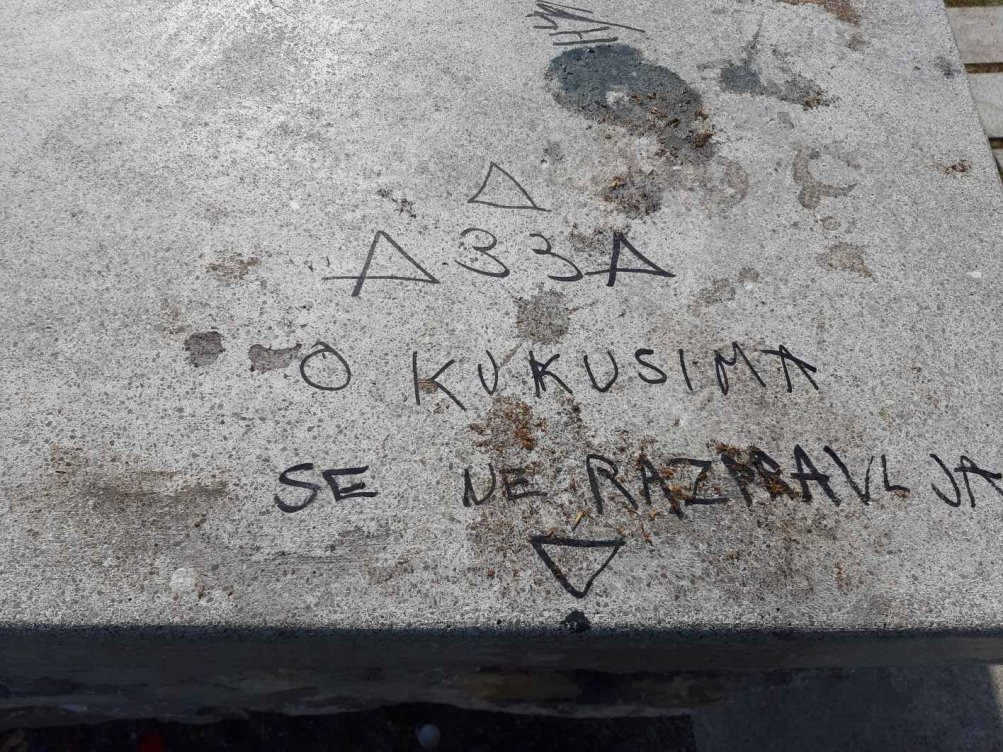 A33A
O KUKUSIMA
SE NE RAZPRAVLJA